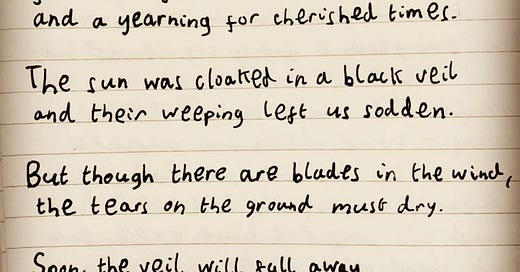 and a yearning for cherished times.
The sun was cloaked in a black veil
and their weeping left us sodden.
But though there are blades in the wind,
the tears on the ground must dry.
Soon, the veil will fall away